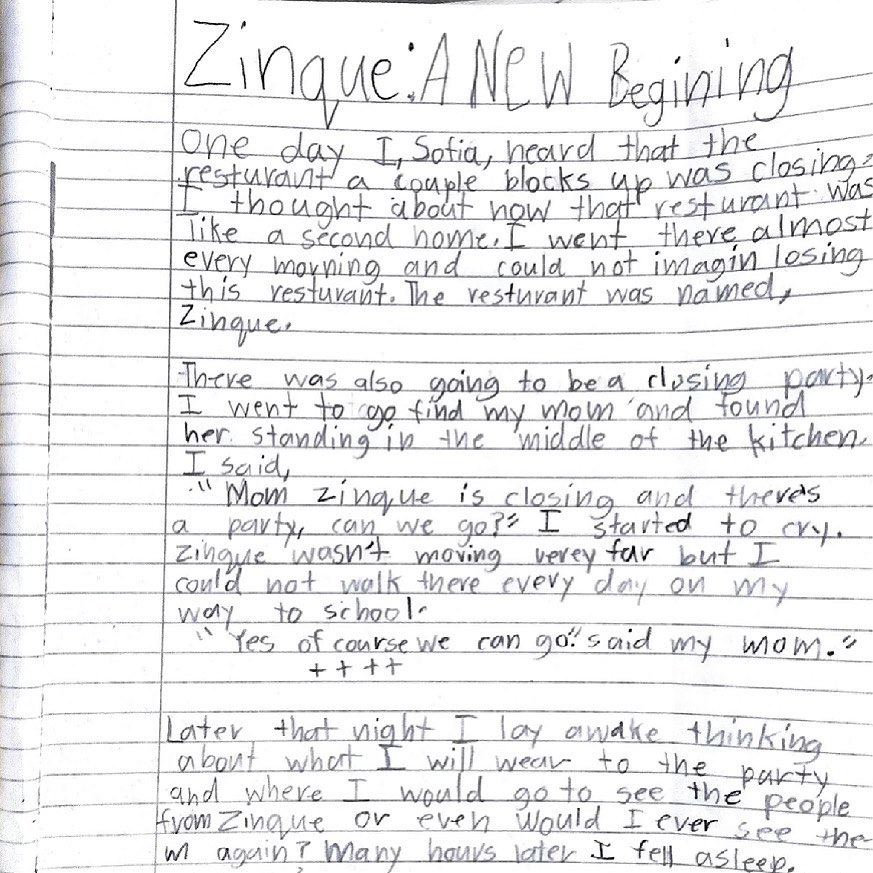 Zinque: A New Begining
One day I, Sofia, heard that the
resturant a couple blocks up was closing.
I thought about how that resturant was
like a second home. I went there almost
every morning and could not imagin losing
this resturant. The resturant was named,
Zinque.
There was also going to be a closing party.
I went to go find my mom and found
her standing in the middle of the kitchen.
I said,
"Mom Zinque is closing and there's
a party, can we go?" I started to cry.
Zinque wasn't moving verey far but I
could not walk there every day on my
way to school.
"Yes of course we can go." said my mom."
++++
Later that night I lay awake thinking
about what I will wear to the party
and where I would go to see the people
from Zinque or even would I ever see the
m again? Many hours later I fell asleep.